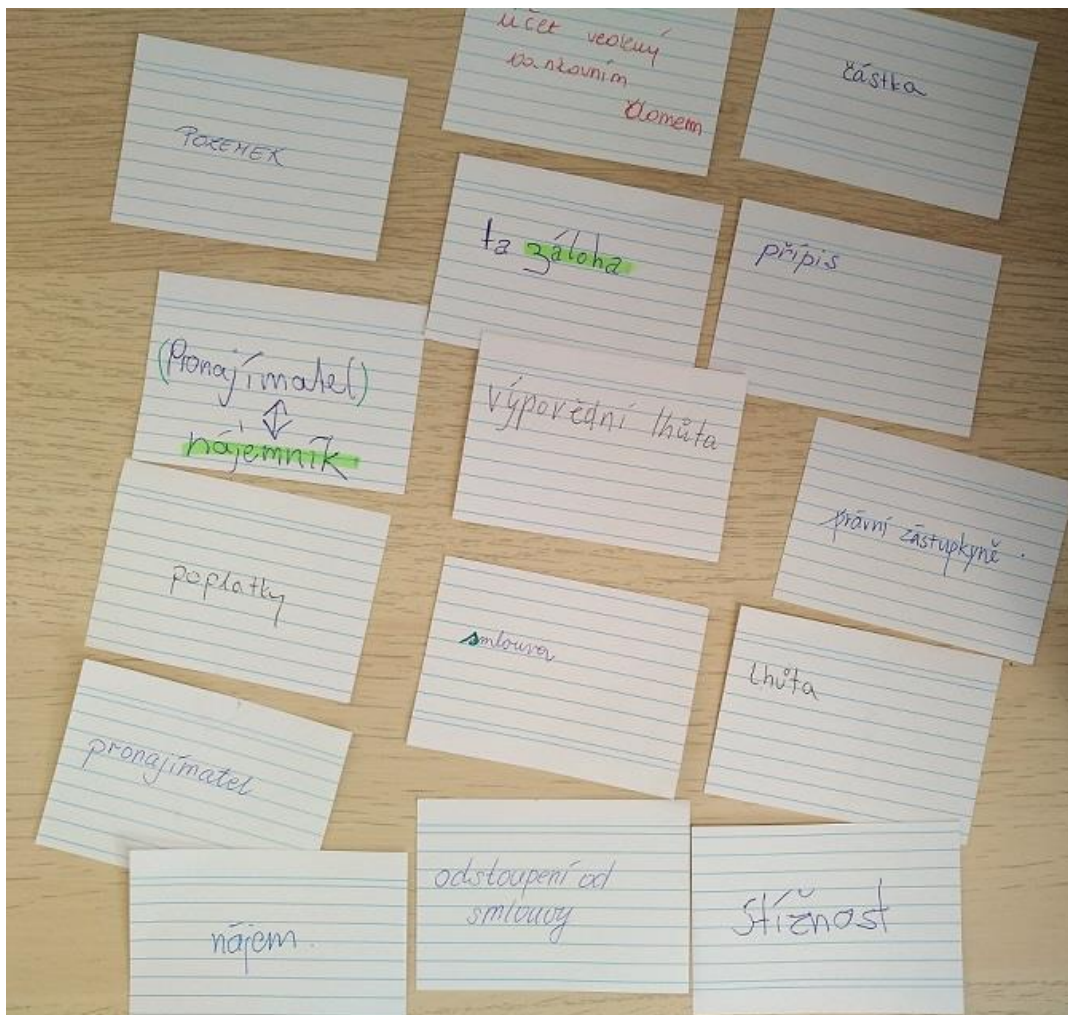 účet vedený
bankovním
domem
částka
POZEMEK
ta záloha
přípis
(Pronajímatel)
nájemník
výpovědní lhůta
právní zástupkyně.
poplatky
smlouva
Lhůta
pronajímatel
odstoupení od
smlouvy
nájem.
Stížnost